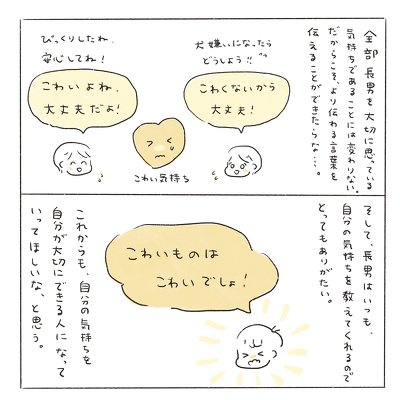 全部、長男を大切に思っている
気持ちであることには変わりない。
だからこそ、より伝わる言葉を
伝えることができたらな…。
犬嫌いになったら
どうしよう!!
こわくないから
大丈夫!
びっくりしたね、
安心してね!
こわいよね、
大丈夫だよ!
こわい気持ち
そして、長男はいつも、
自分の気持ちを教えてくれるので
とってもありがたい。
こわいものは
こわいでしょ!
これからも、自分の気持ちを
自分が大切にできる人になって
いってほしいな、と思う。